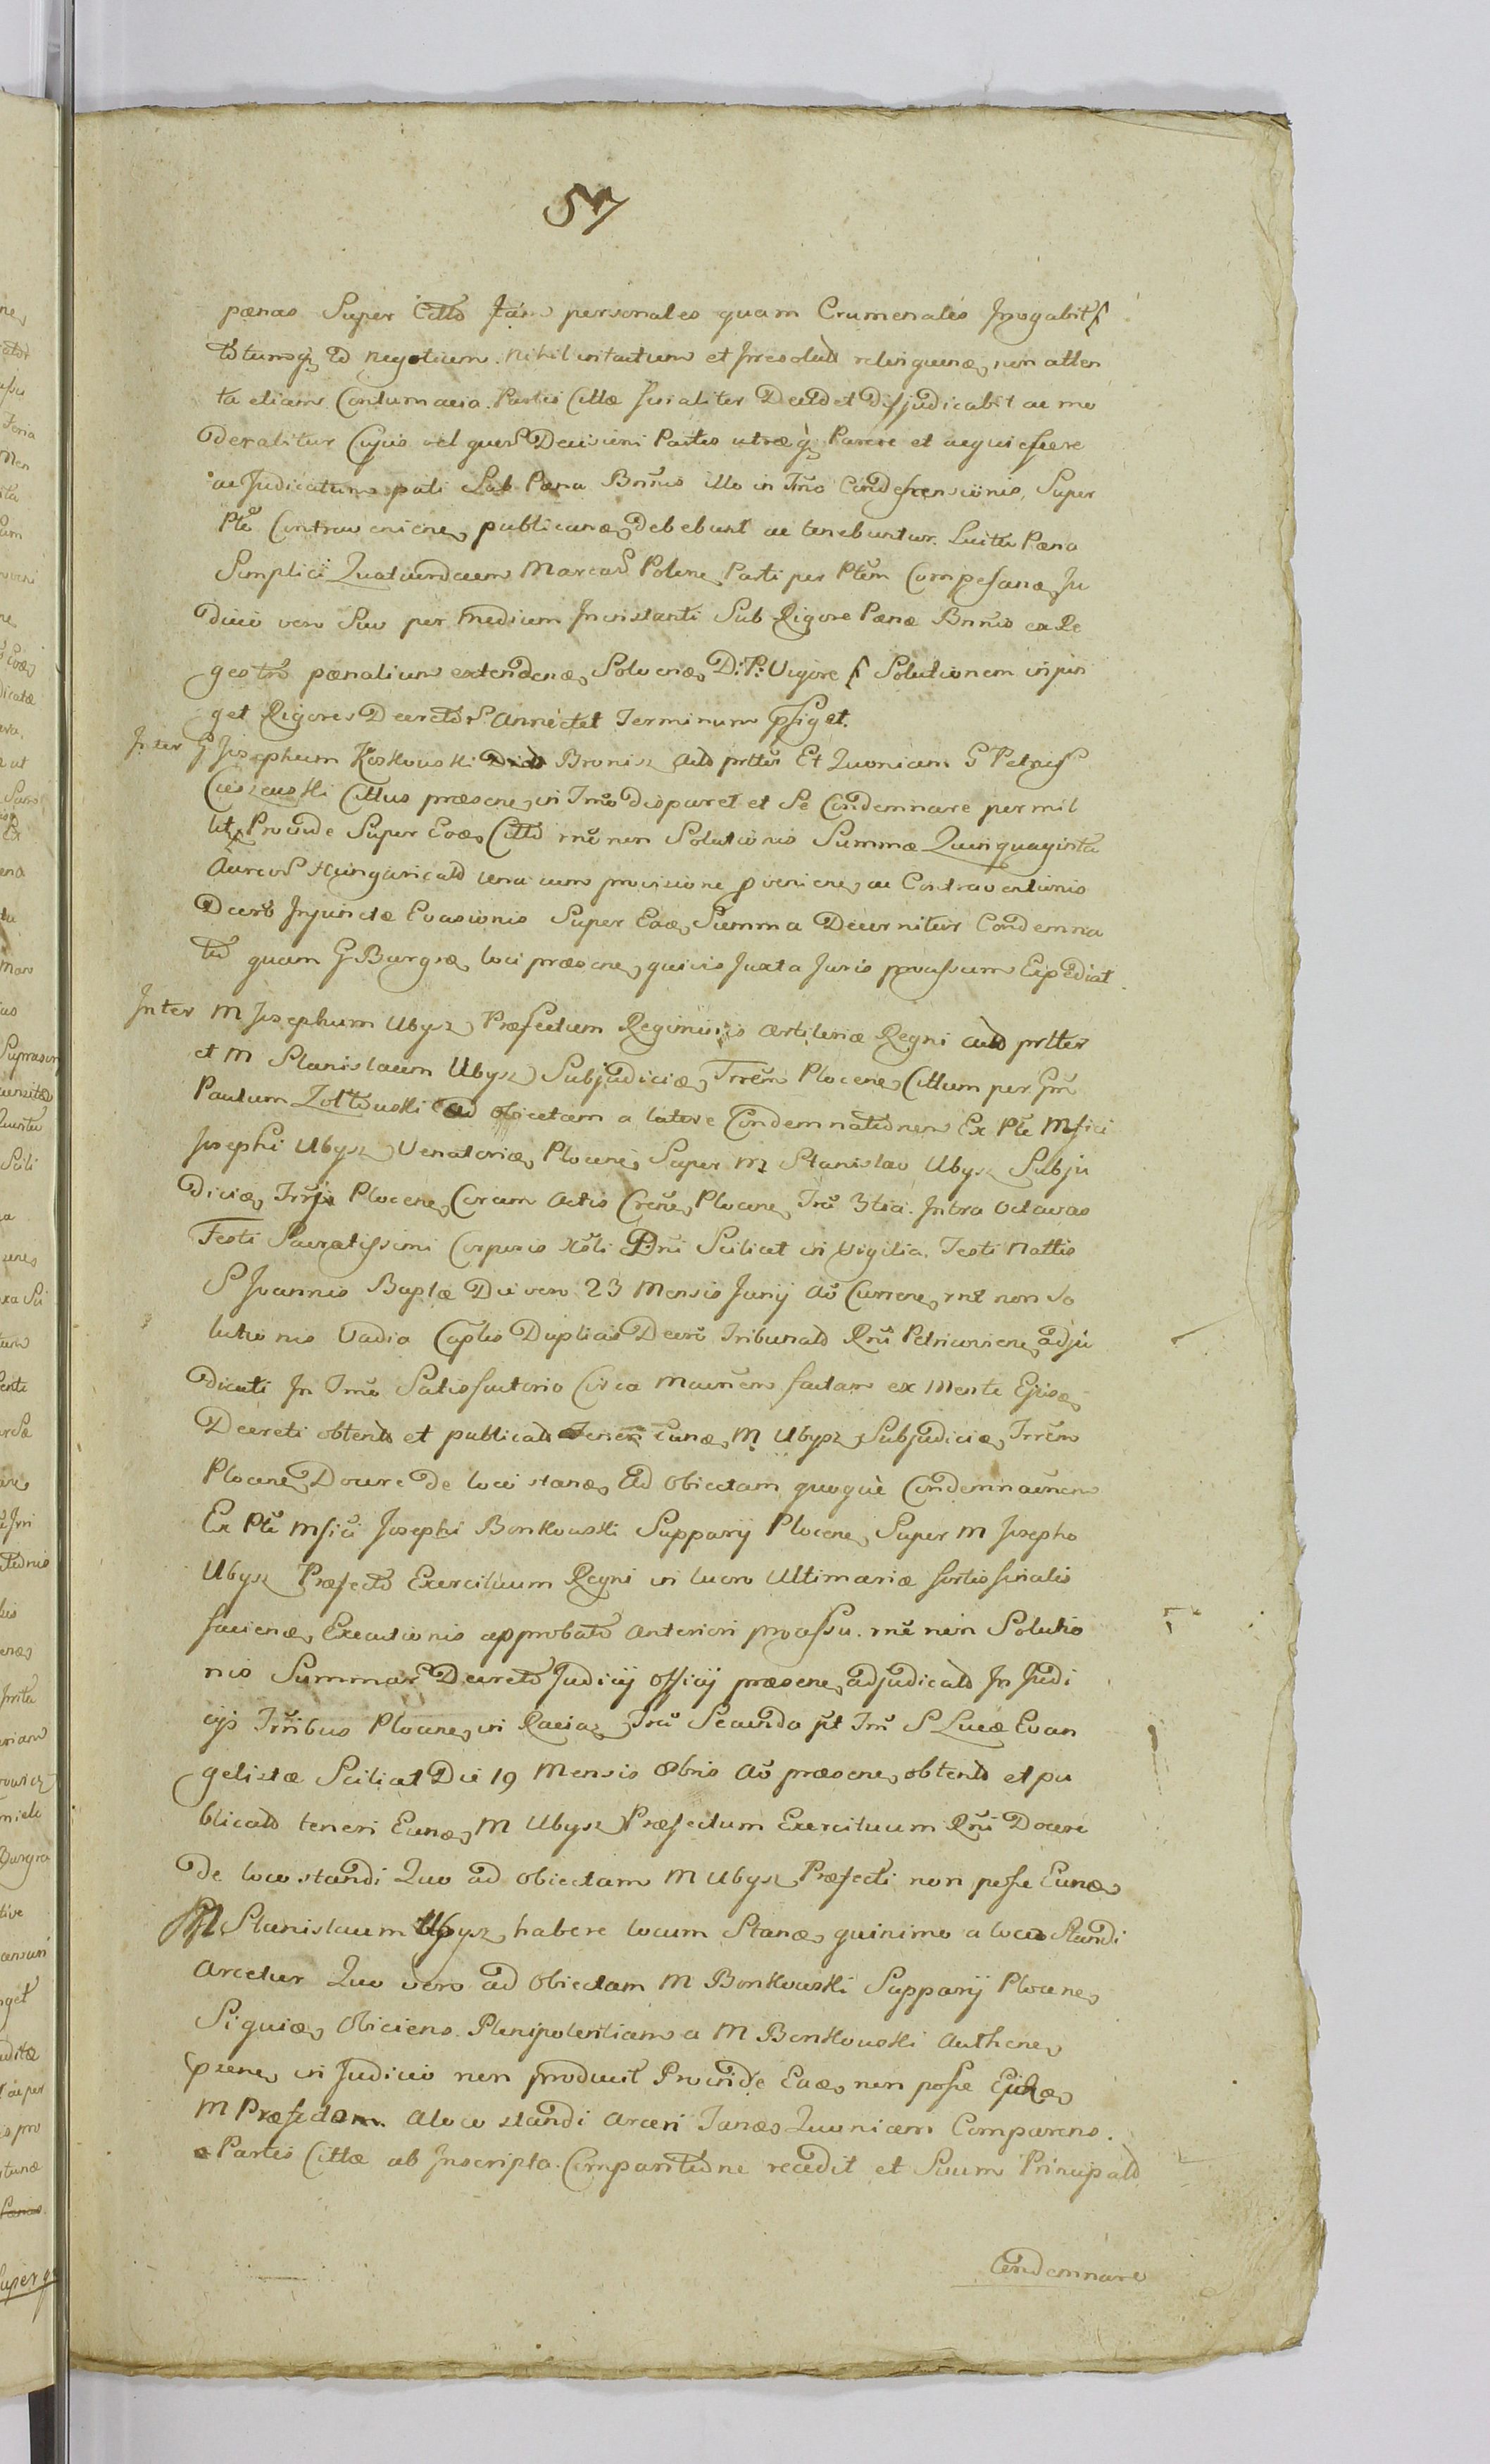 57
pænas Super Citto tam personales quam Crumenales Irrogabit
totumq3 id negotium. Nihil intactum et Irresolut relinquenæ, non atten
ta etiam Contumacia. Partis Cittæ finaliter Decidet Dijudicabit ac mo
derabitur Cujus vel quors Decisioni Partes utræq3 Parere et acquiescere
ac Judicatum pati Sub Pæna Bnnis illo in Tmo Condescensionis, Super
Pte Contravenien, publicanæ, debebunt ac tenebuntur. Luitu Pæna
Simplici Quatuordecem Marcars Polone, Parti per Ptem Compesanæ, Ju
dicio vero Suo per medium Inconstanti Sub Rigore Pænæ Bnnis ex Re
gestro pænalium extendenæ, Solvenæ, D: P: Vigore Solutionem injun
get Rigores Decretors Annectet Terminum pfiget.
Inter G Josephum Koskowski Bronisz Actd prttu Et Quoniam G Petrus
Cieszewski Cittus præsene, in Tmo disparet et Se Condemnare permit
tit, Proinde Super Eoæ, Citto rne non Solutionis Summæ Quinquaginta
Aureors Hungaricald una cum provisione pveniene, ac Contraventionis
Decro Injunctæ Evasionis Super Eaæ, Summa Decernitur Condemna
td quam G Burgræ, loci præsene, quivis Juxta Juris processum Expediat.
Inter M Josephum Ubysz Præfectum Regiminis Artileriæ Regni actd prtter
et M Stanislaum Ubysz Subjudiciæ, Trrem Plocene, Cittum per Gm
Paulum Zoltowski Ad Obiectam a latere Condemnationem Ex Pte Mfici
Josephi Ubysz Venatoriæ, Plocene, Super M Stanislao Ubysz Subju
diciæ, Trris Plocene, Coram Actis Crene, Plocene, Tru 3tia. Intra Octavas
Festi Sacratissimi Corporis Xsti Dni Scilicet in Vigilia. Festi Nattis
S Joannis Baptæ Die vero 23 Mensis Junij Ao Currene, rne non So
lutionis Vadia Captis Duplicis Decro Tribunald Rni Petricoviene, adju
dicati In Tmo Satisfactorio Circa Maunem factam ex Mente Ejusæ,
Decreti obtentd et publicatd teneri Eunæ, M Ubysz Subjudiciæ, Trrem
Plocene, Docere De loco stanæ, Ad Obiectam quoque Condemnaonem
Ex Pte Mfici Josephi Bonkowski Supparij Plocene, Super M Josepho
Ubysz Præfecto Exercituum Regni in lucro Ultimariæ fortis finalis
facienæ, Executionis approbato Anteriori processu. rne non Solutio
nis Summars Decreto Judicij Officij præsene, adjudicatd In Judi
cijs Trribus Plocene, in Raciaz Tru Secunda pt Tm S Lucæ Evan
gelistæ Scilicet Die 19 Mensis 8bris Ao præsene, obtentd et pu
blicatd teneri Eunæ, M Ubysz Præfectum Exercituum Rni Docere
De loco standi Quo ad obiectam M Ubysz Præfecti non posse Eunæ,
M Stanislaum Ubysz, habere locum Stanæ, quinimo a loco Standi
Arcetur Quo vero ad Obiectam M Bonkowski Supparij Plocene,
Siquiæ, Obiciens. Plenipotentiam a M Bonkowski Authene,
piene, in Judicio non producit Proinde Eaæ, non posse Eunæ,
M Præfectum. A loco standi Arceri Tanæ, Quoniam Comparens.
e Partis Cittæ ab Inscripta. Comparitione recedit et Suum Principald
Condemnare